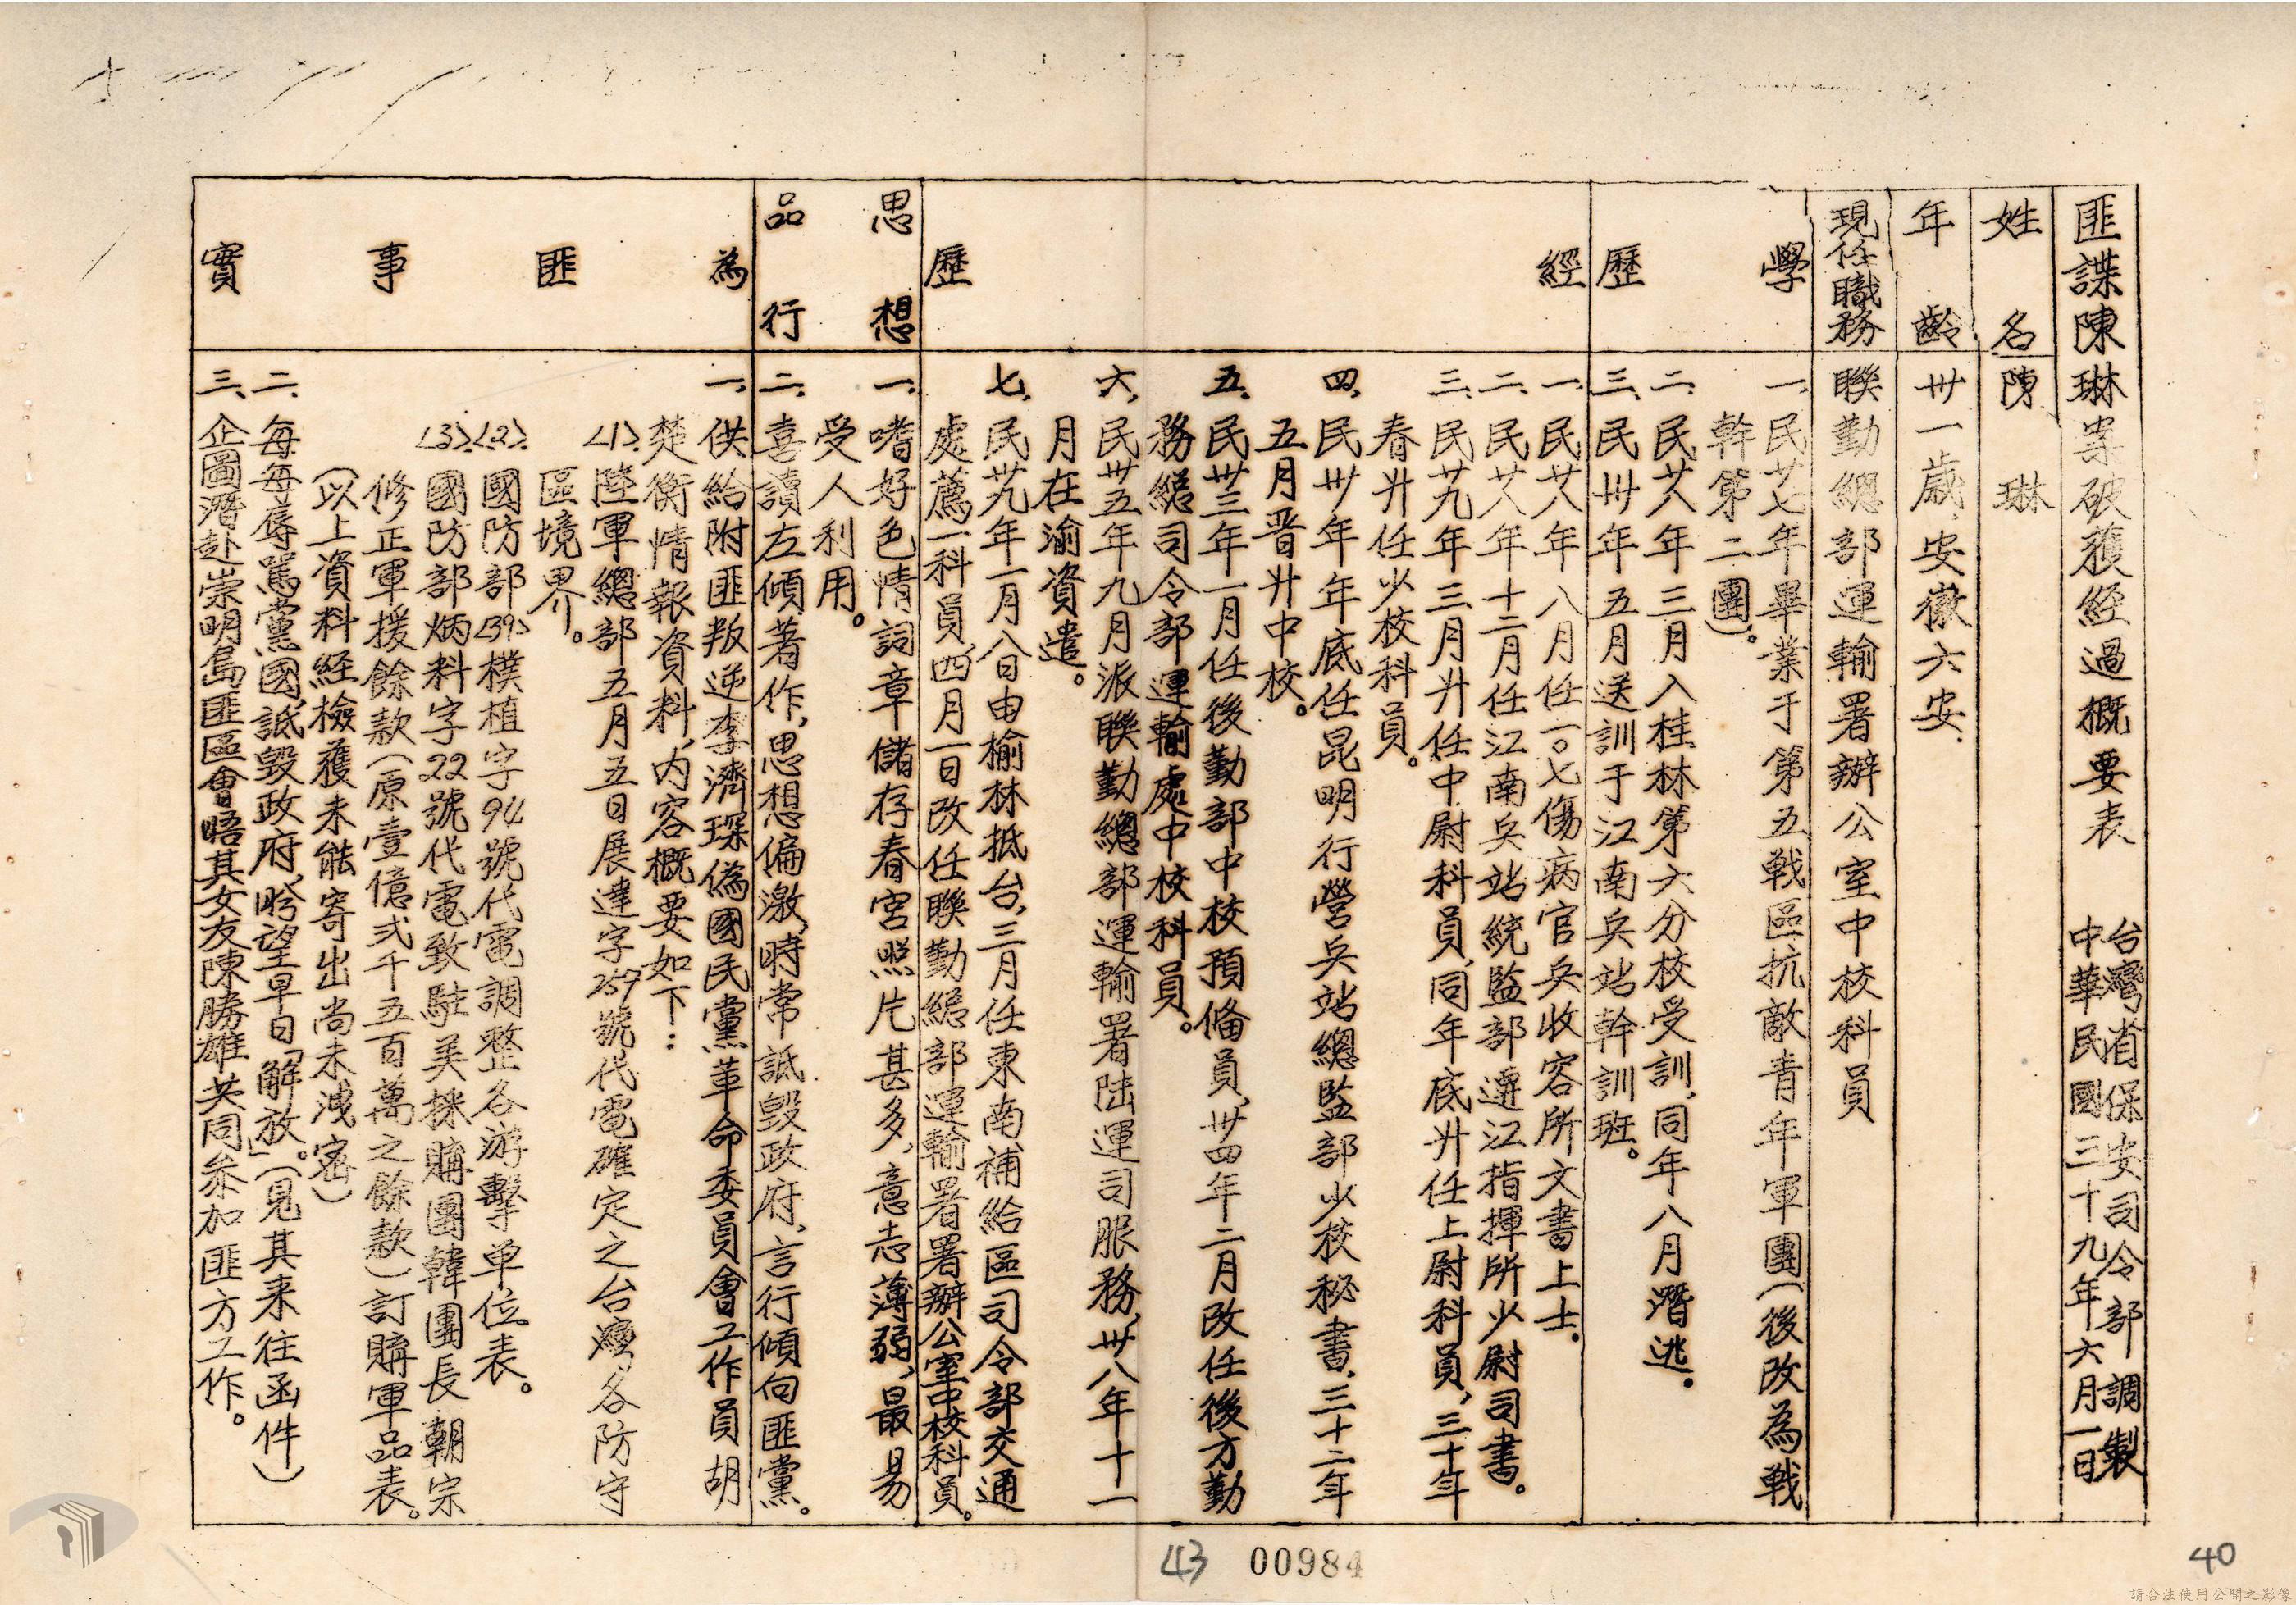 匪諜陳琳案破獲経過概要表
台灣省保安司令部調製
中華民國三十九年六月一日
姓名
陳琳
年齡
卅一歲安徽六安
現任職務
聯勤總部運輸署辦公室中校科員
學歷
一、民廿七年畢業于第五戰區抗敵青年軍團（後改為戰
幹第二團）。
二、民廿八年三月入桂林第六分校受訓，同年八月潛逃。
三、民卅年五月送訓于江南兵站幹訓班。
經歷
一、民廿八年八月任一〇七傷病官兵收容所文書上士。
二、民廿八年十二月任江南兵站統監部遷江指揮所少尉司書。
三、民廿九年三月升任中尉科員，同年底升任上尉科員，三十年
春升任少校科員。
四、民卅年年底任昆明行營兵站總監部少校秘書，三十二年
五月晋升中校。
五、民卅三年一月任後勤部中校預備員，卅四年二月改任後方勤
務總司令部運輸處中校科員。
六、民卅五年九月派聯勤總部運輸署陆運司服務，卅八年十一
月在渝資遣。
七、民卅九年一月八日由榆林抵台，三月任東南補給區司令部交通
處薦一科員，四月一日改任聯勤總部運輸署署辦公室中校科員。
思想品行
一、嗜好色情詞章儲存春宮照片甚多，意志薄弱，最易
受人利用。
二、喜讀左傾著作，思想偏激，時常詆毀政府，言行傾向匪黨。
為匪事實
一、供給附匪叛逆李濟琛偽國民黨革命委員會工作員胡
楚衡情報資料，内容概要如下：
〈1〉陸軍總部五月五日展達字259號代電確定之台灣各防守
區境界。
〈2〉國防部〈39〉樸植字94號代電調整各游擊单位表。
〈3〉國防部炳料字22號代電致駐美採購團韓團長朝宗
修正軍援餘款（原壹億弍千五百萬之餘款）訂購軍品表。
（以上資料経檢獲未能寄出尚未洩密）
二、每每辱罵黨國，詆毀政府，盻望早日「解放」。（見其来往函件）
三、企圖潛赴崇明島匪區會晤其女友陳勝雄共同参加匪方工作。
43
00984
40
請合法使用公開之影像